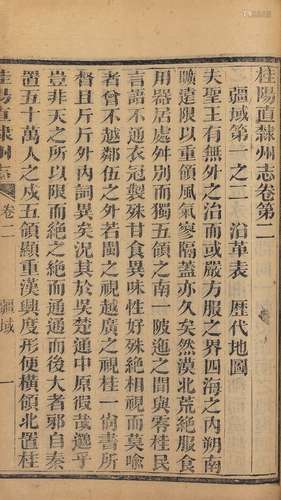 桂陽直隸州志卷第二
疆域第一之二 沿革表 歷代地圖
夫聖王有無外之治而或嚴方服之界四海之內朔南
曠遠限以重領風氣寥隔蓋亦久矣然漠北荒絶服食
用器居處舛別而獨五領之南一陂迆之間與零桂民
言語不通衣冠製殊甘食異味性好殊絶相視而莫喻
者曾不越鄰伍之外若閩之視越廣之視桂一尙書所
督且斤斤外內詞異矣況其於吳楚通中原邈乎
豈非天之所以限而絶之絶而通通而後大者邪自秦
置五十萬人之戍五領顯重漢興度形便橫領北置桂
桂陽直隸州志
卷二
疆域
一